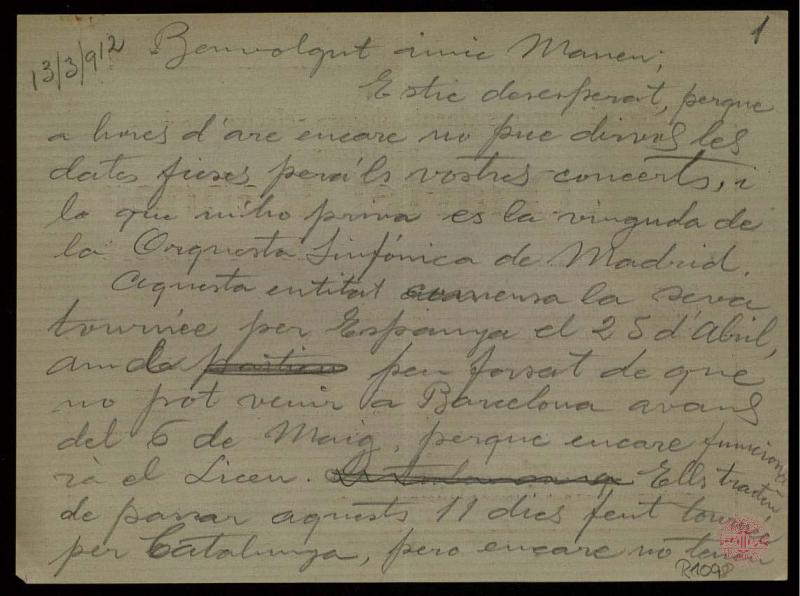 1
13/3/912
Benvolgut amic Manen;
Estic desesperat, perque
a hores d'are encare no puc dirvos les
dates fixes pera'ls vostres concerts, i
lo que m'ho priva es la vinguda de
la Orquesta Sinfónica de Madrid.
Aquesta entitat comensa la seva
tournée per Espanya el 25 d'Abril,
amb peu forsat de que
no pot venir a Barcelona avans
del 6 de Maig, perque encare funciona
rà el Liceu. Ells
de passar aquests 11 dies fent tournée
per Catalunya, pero encare no
R1098